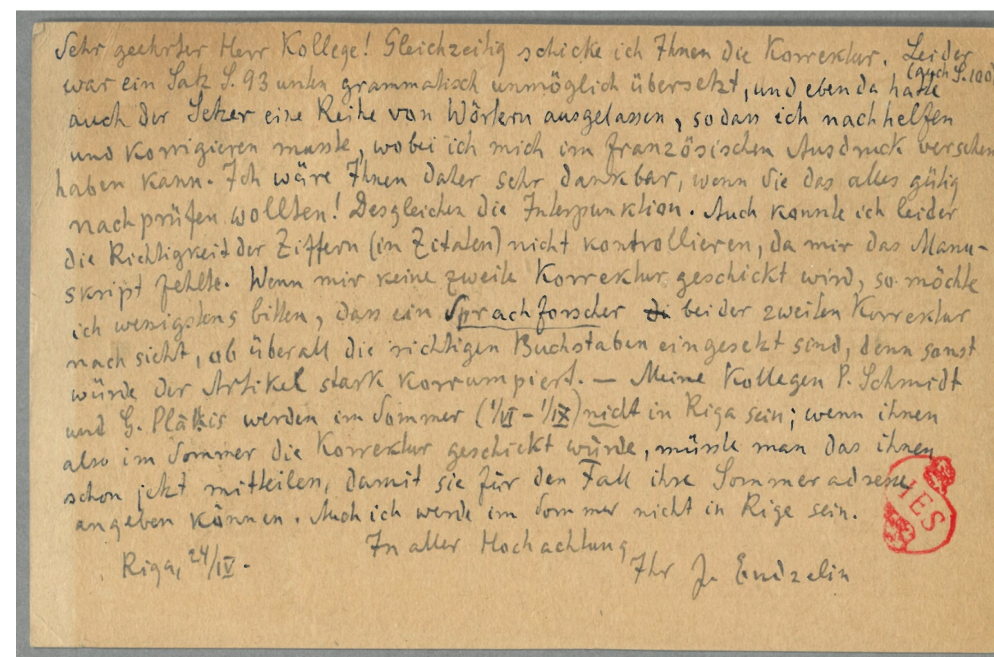 Sehr geehrter Herr Kollege! Gleichzeitig schicke ich Ihnen die Korrektur. Leider
war ein Satz S. 93 unten (auch S. 100) grammatisch unmöglich übersetzt, und ebenda hatte
auch der Setzer eine Reihe von Wörtern ausgelassen, sodass ich nachhelfen
und korrigieren musste, wobei ich mich im französischen Ausdruck versehen
haben kann. Ich wäre Ihnen daher sehr dankbar, wenn Sie das alles gütig
nachprüfen wollten! Desgleichen die Interpunktion. Auch konnte ich leider
die Richtigkeit der Ziffern (in Zitaten) nicht kontrollieren, da mir das Manu-
skript fehlte. Wenn mir keine zweite Korrektur geschickt wird, so möchte
ich wenigstens bitten, dass ein Sprachforscher bei der zweiten Korrektur
nach sieht, ob überall die richtigen Buchstaben eingesetzt sind, denn sonst
würde der Artikel stark korrumpiert. — Meine Kollegen P. Schmidt
und G. Plāķis werden im Sommer (1/VI – 1/IX) nicht in Riga sein; wenn ihnen
also im Sommer die Korrektur geschickt würde, müsste man das ihnen
schon jetzt mitteilen, damit sie für den Fall ihre Sommeradresse
angeben können. Auch ich werde im Sommer nicht in Riga sein.
In aller Hochachtung
Riga, 24/IV.
Ihr J. Endzelin
HES